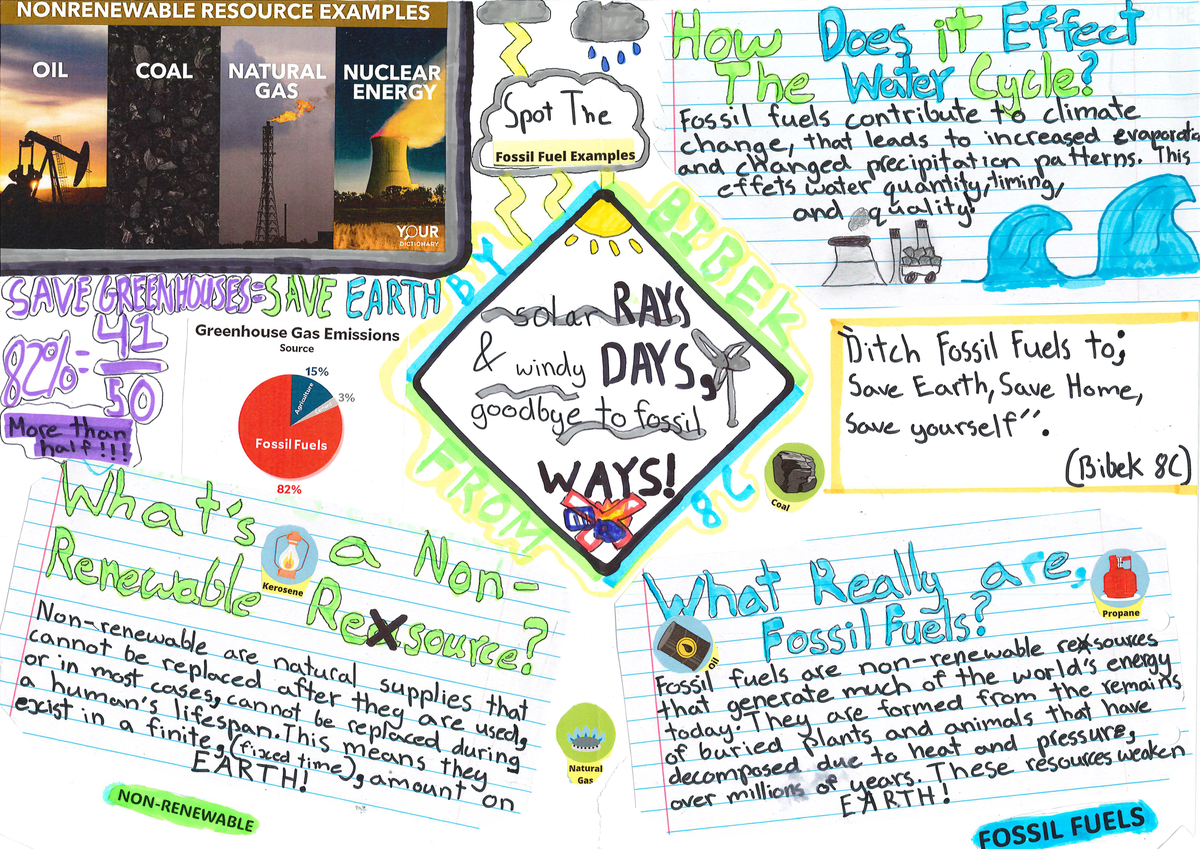 NONRENEWABLE RESOURCE EXAMPLES
OIL
COAL
NATURAL
GAS
NUCLEAR
ENERGY
YOUR
DICTIONARY
Spot The
Fossil Fuel Examples
How Does it Effect
The Water Cycle?
Fossil fuels contribute to climate
change, that leads to increased evaporatio
and changed precipitation patterns. This
effets water quantity, timing,
and quality.
SAVE GREENHOUSES=SAVE EARTH
82%= 41
50
More than
half!!!
Greenhouse Gas Emissions
Source
15%
Agriculture
3%
Fossil Fuels
82%
BY
BIBEK
FROM
8C
solar RAYS
& windy DAYS,
goodbye to fossil
WAYS!
Coal
"Ditch Fossil Fuels to;
Save Earth, Save Home,
Save yourself".
(Bibek 8C)
What's a Non-
Renewable Resource?
Kerosene
Non-renewable are natural supplies that
cannot be replaced after they are used,
or in most cases, cannot be replaced during
a human's lifespan. This means they
exist in a finite, (fixed time), amount on
EARTH!
NON-RENEWABLE
Natural
Gas
What Really are,
Fossil Fuels?
Oil
Propane
Fossil fuels are non-renewable resources
that generate much of the world's energy
today. They are formed from the remains
of buried plants and animals that have
decomposed due to heat and pressure,
over millions of years. These resources weaken
EARTH!
FOSSIL FUELS